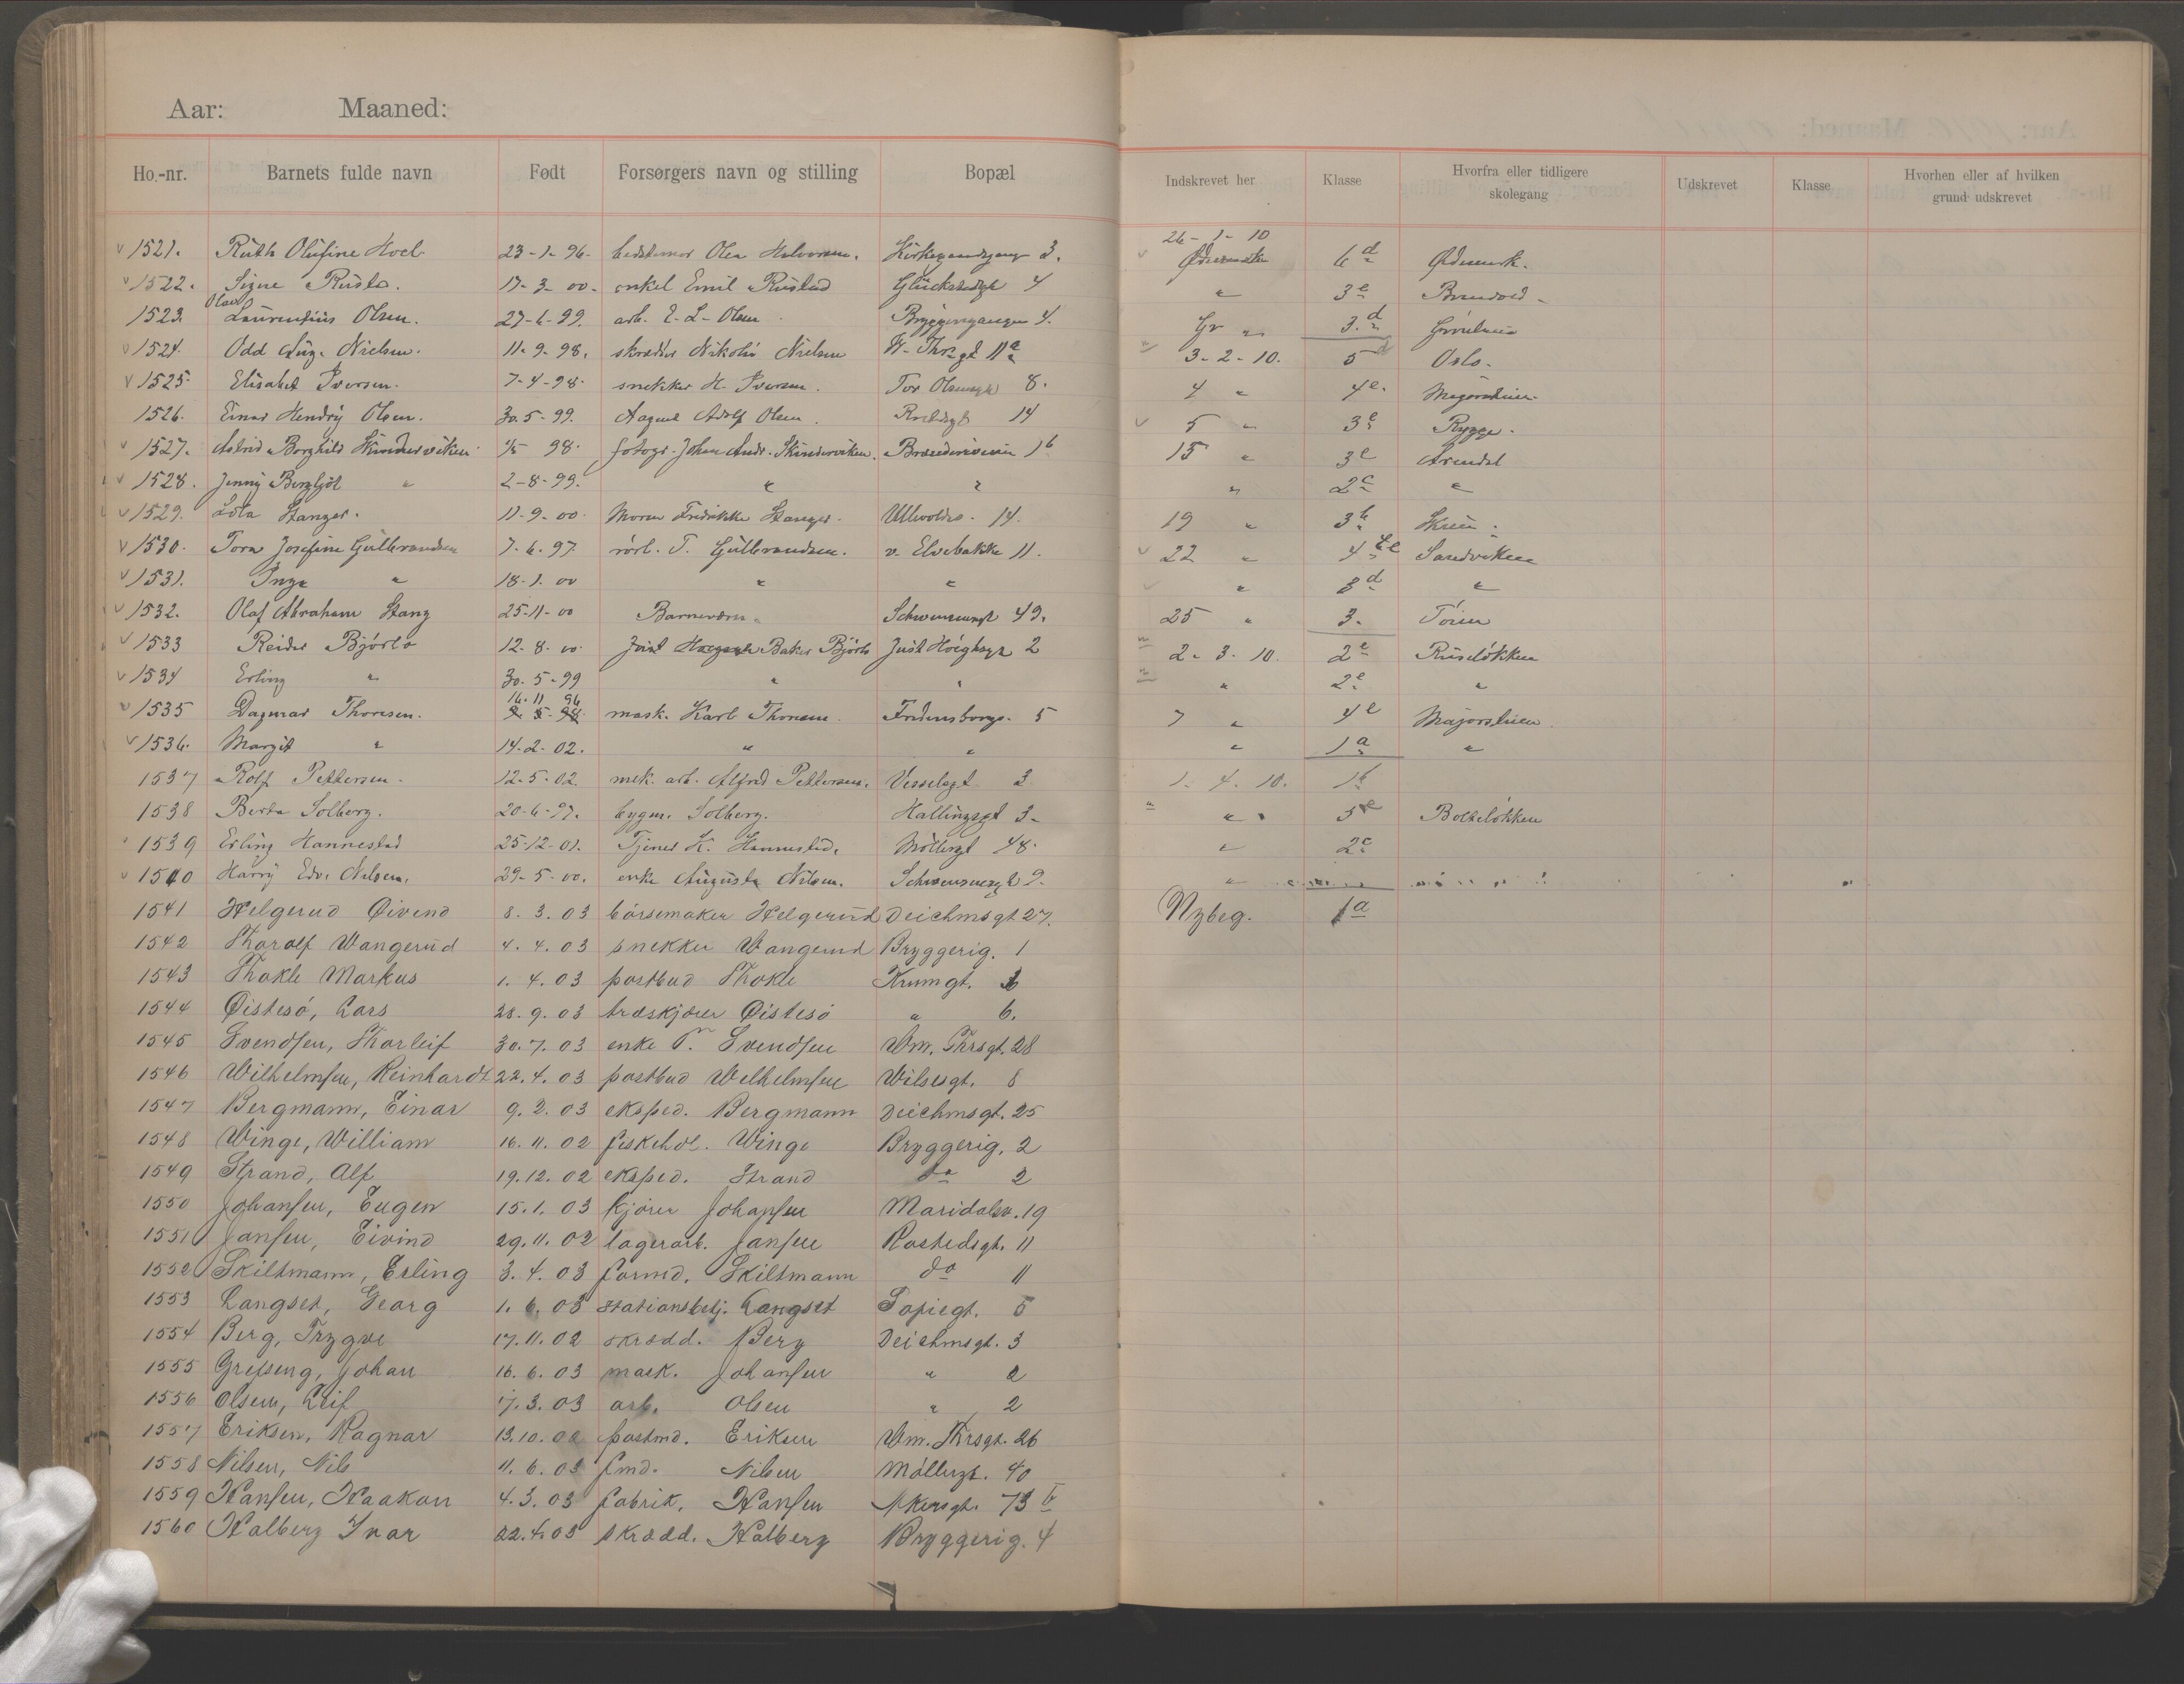 Aar: Maaned:
Ho.-nr. Barnets fulde navn Født Forsørgers navn og stilling Bopæl Indskrevet her Klasse Hvorfra eller tidligere skolegang Udskrevet Klasse Hvorhen eller af hvilken grund udskrevet
26-1-10
1521. Ruth Olufine Hoel 23-1-96. bedstemor Olea Halvorsen. 3. 6d Ødemark.
1522. Signe Rusta. 17-3-00. onkel Emil Rustad 4 " 3e
Olav
1523. Laurentius Olsen. 27-6-99. arb. E. L. Olsen Bryggerigangen 4. 3.d
1524. Odd Aug. Nielsen. 11-9-98. skrædder Nikolai Nielsen W. Thrsgt 11a 3-2-10. 5d Oslo.
1525. Elisabet Iversen. 7-4-98. snekker H. Iversen. Tor Olsensgt 8. 4 " 4e. Majorstuen
1526. Einar Hendry Olsen. 30.5-99. Adolf Olsen. 14 5 " 3e Rygge.
1527. Astrid Borghild Skindersviken 98. fotogr. Johan Andr. Skinderviken. 1b 15 " 3e Arendal
1528. Jenny Bergljot " 2-8-99. " " " 2c "
1529. Stanger. 11-9-00. Moren Fredrikke Stanger. Ullevoldsv. 14. 19 " 3b
1530. Tora Josefine Gulbrandsen 7-6-97. rørl. T. Gulbrandsen. v. Elvebakke 11. 22 " 4 Sandviken
1531. Inga " 18-1-00 " " " d "
1532. Olaf Abraham Stang 25-11-00 Barnevern. Schwensensgt 49. 25 " 3.
1533 Reidar Bjørlo 12-8-00 Baker Bjørlo Just Høeghsgt 2 2-3-10. 2e Ruseløkken
1534 Erling " 30.5-99 " " " 2e "
16.11 96
1535 Dagmar Thoresen. mask. Karl Thoresen Fredensborgv. 5 7 " 4e Majorstuen.
1536. Margit " 14-2-02. " " " 1a "
1537 Rolf Pettersen. 12-5-02. mek. arb. Alfred Pettersen. Vesselsgt 3 1-4-10. 1b
1538 Berta Solberg. 20-6-97. bygm. Solberg. Hallingsgt 3- " 5e Bolteløkken
1539 Erling Hannestad 25-12-01. Tjener K. Hannestad. Møllergt 48. " 2c
1540 Harry Edv. Nilsen. 29-5-00. enke Augusta Nilsen. Schwensensgt 9. "
1541 Helgerud Øivind 8.3.03 børsemaker Helgerud Deichmsgt 27. Nybeg. 1a
1542 Thorolf Wangerud 4.4.03 snekker Wangerud Bryggerig. 1
1543 Thokle Markus 1.4.03 postbud Thokle Krumgt.
1544 Øistesø, Lars 28.9.03 træskjærer Øistesø " 6.
1545 Svendsen, Thorleif 30.7.03 enke T. Svendsen Wm. Thrsgt. 28
1546 Wilhelmsen, Reinhardt 22.4.03 postbud Welhelmsen Wilsesgt. 8
1547 Bergmann, Einar 9.2.03 eksped. Bergmann Deichmsgt. 25
1548 Winge, William 16.11.02 fiskehdl. Winge Bryggerig. 2
1549 Strand, Alf 19.12.02 eksped. Strand do 2
1550 Johansen, Eugen 15.1.03 kjører Johansen Maridalsv. 19
1551 Jansen, Eivind 29.11.02 lagerarb. Jansen Rostedsgt. 11
1552 Skiltmann, Erling 3.4.03 formd. Skiltmann do 11
1553 Langset, Georg 1.6.03 stationsbetj. Langset Sofiegt. 5
1554 Berg, Trygve 17.11.02 skrædd. Berg Deichmsgt. 3
1555 Grefseng, Johan 16.6.03 mask. Johansen " 2
1556 Olsen, Leif 17.3.03 arb. Olsen " 2
1557 Eriksen, Ragnar 13.10.02 postmd. Eriksen Wm. Thrsgt. 26
1558 Nilsen, Nils 11.6.03 fmd. Nilsen Møllergt. 40
1559 Hansen, Haakon 4.3.03 fabrik. Hansen Akersgt. 73b
1560 Halberg Ivar 22.4.03 skrædd. Halberg Bryggerig. 4